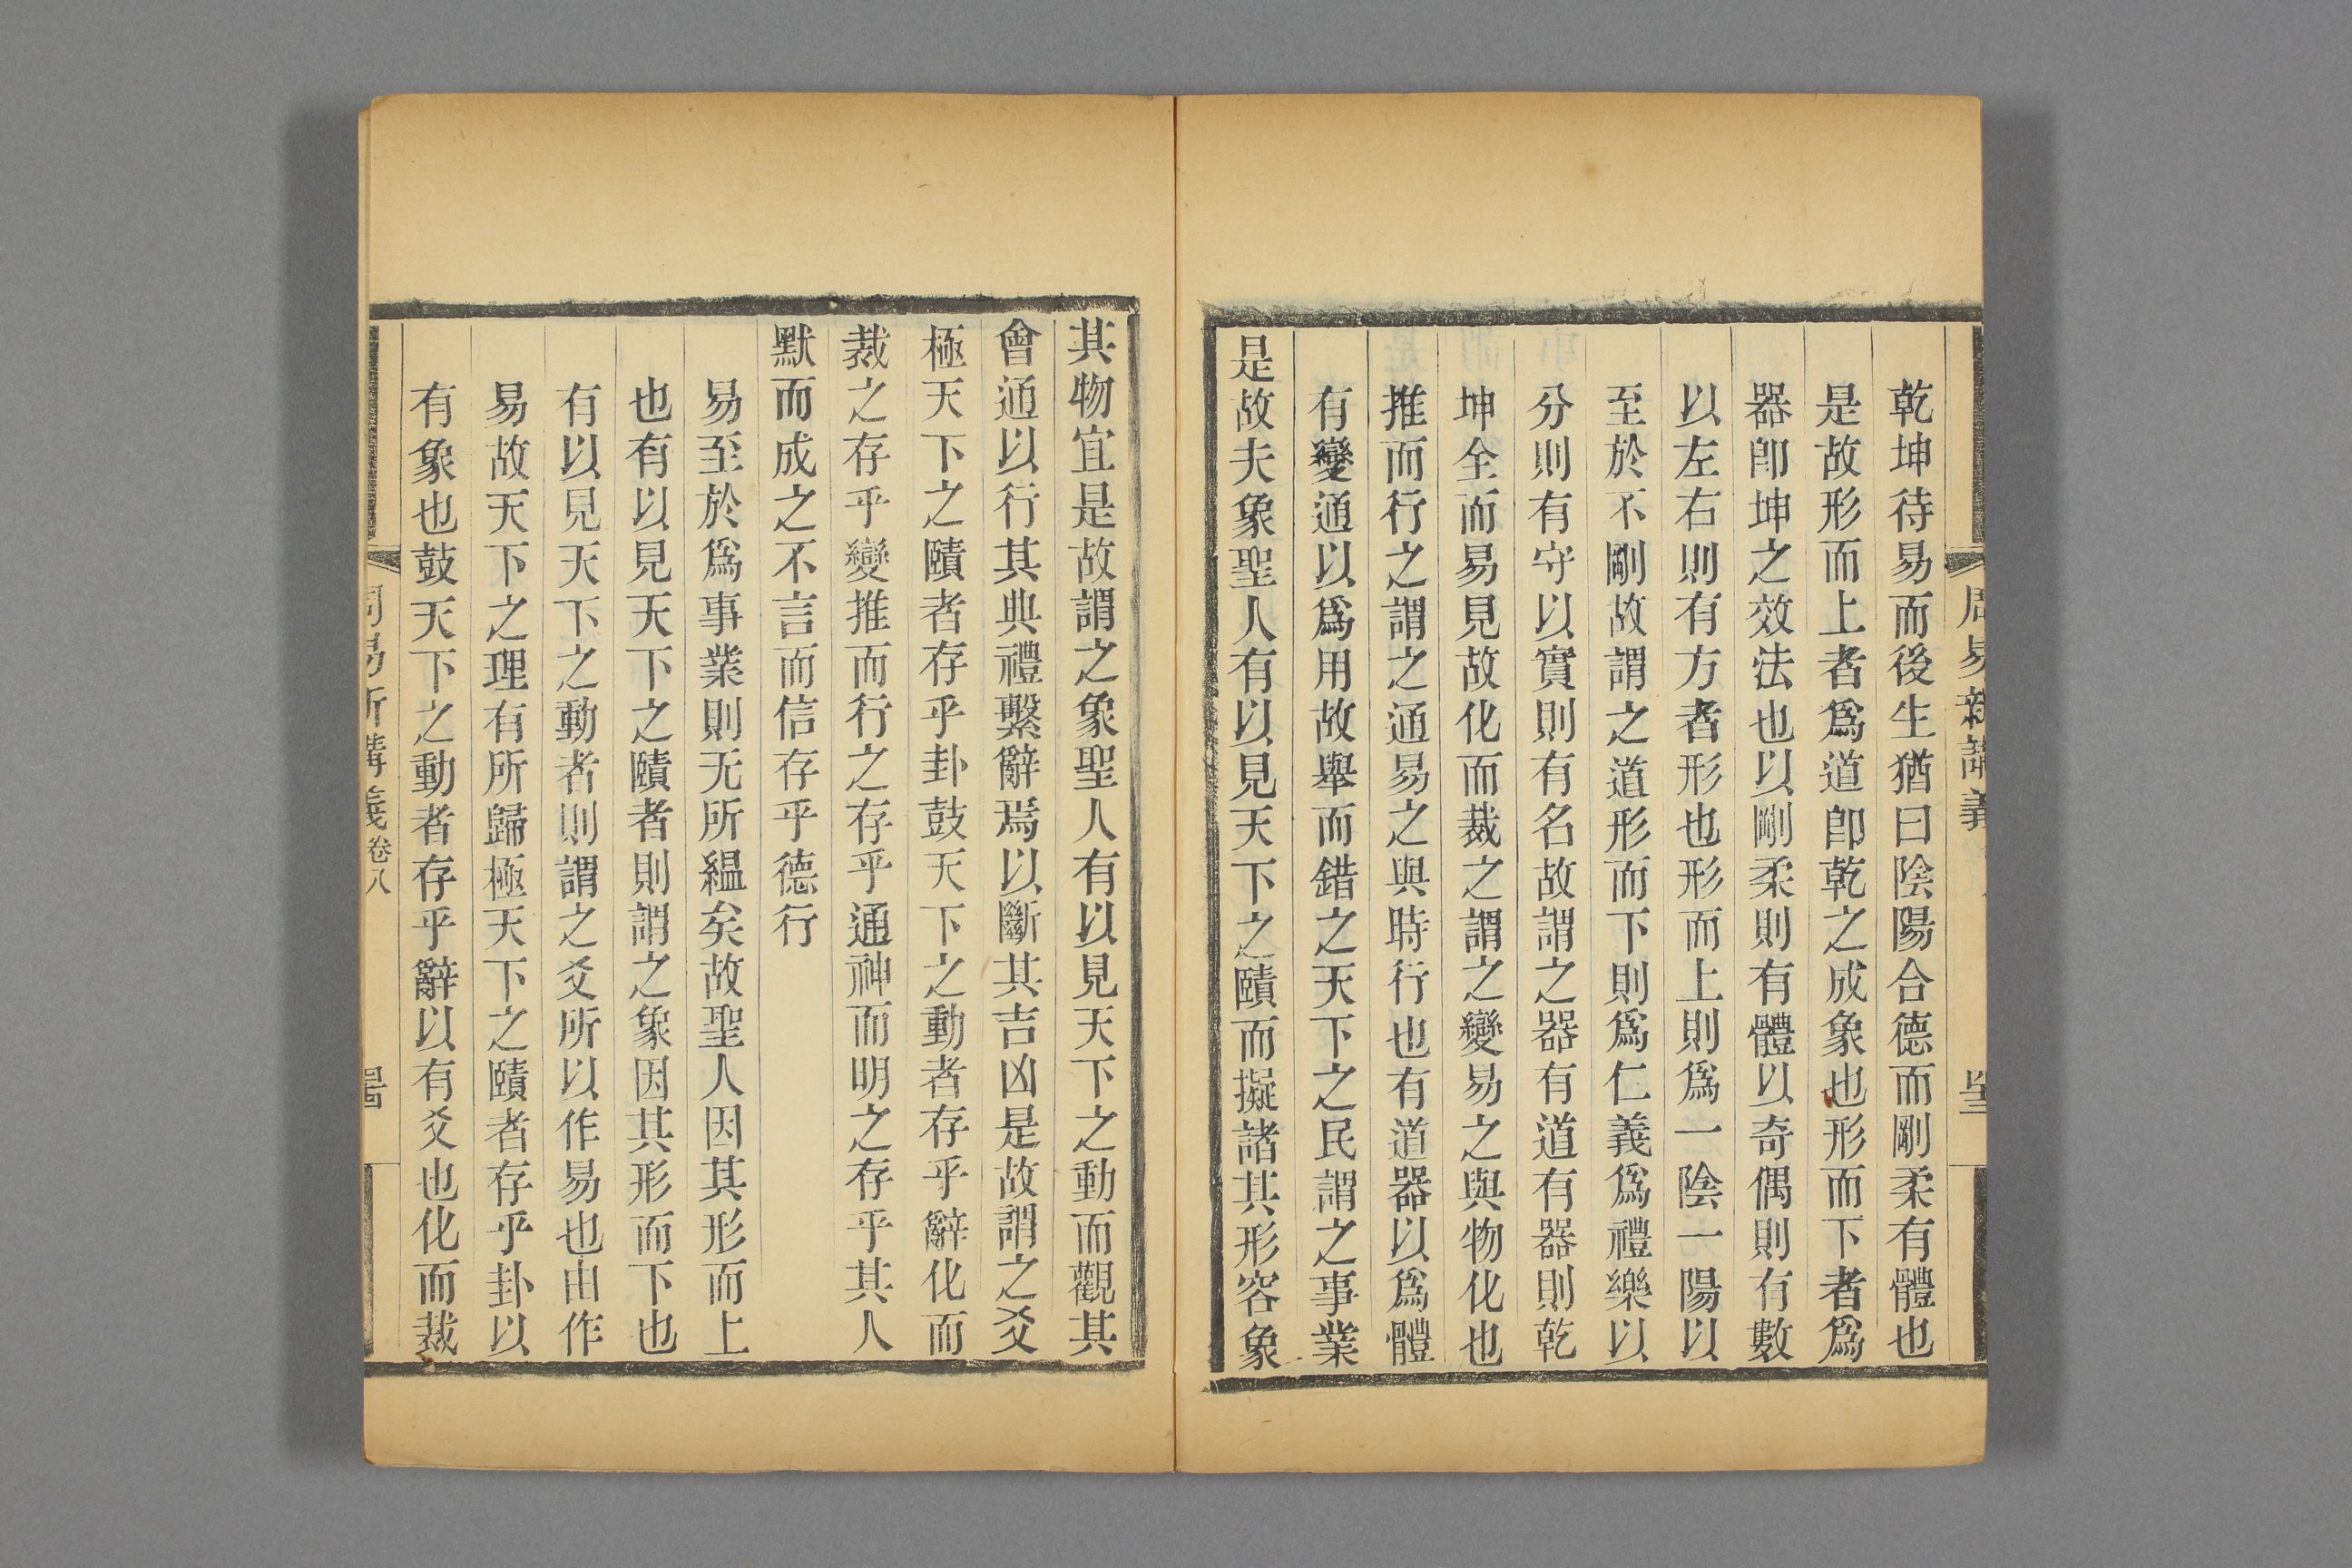 乾坤待易而後生猶曰陰陽合德而剛柔有體也
是故形而上者爲道卽乾之成象也形而下者爲
器卽坤之效法也以剛柔則有體以奇偶則有數
以左右則有方者形也形而上則爲一陰一陽以
至於不剛故謂之道形而下則爲仁義爲禮樂以
分則有守以實則有名故謂之器有道有器則乾
坤全而易見故化而裁之謂之變易之與物化也
推而行之謂之通易之與時行也有道器以爲體
有變通以爲用故舉而錯之天下之民謂之事業
是故夫象聖人有以見天下之賾而擬諸其形容象
其物宜是故謂之象聖人有以見天下之動而觀其
會通以行其典禮繫辭焉以斷其吉凶是故謂之爻
極天下之賾者存乎卦鼓天下之動者存乎辭化而
裁之存乎變推而行之存乎通神而明之存乎其人
默而成之不言而信存乎德行
易至於爲事業則无所縕矣故聖人因其形而上
也有以見天下之賾者則謂之象因其形而下也
有以見天下之動者則謂之爻所以作易也由作
易故天下之理有所歸極天下之賾者存乎卦以
有象也鼓天下之動者存乎辭以有爻也化而裁
周易新講義
周易新講義卷八